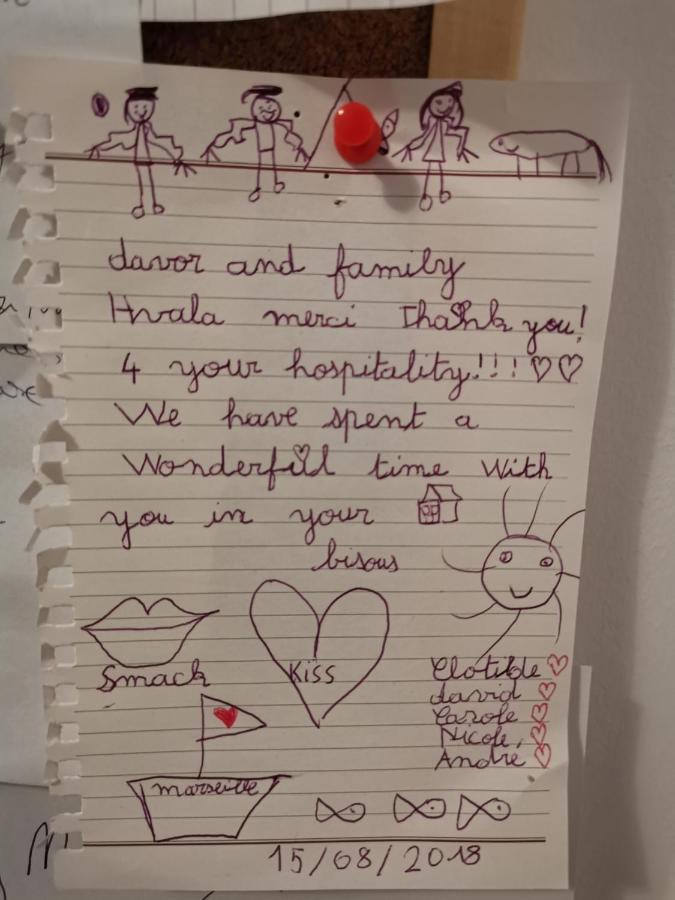 davor and family
Hvala merci Thank you!
4 your hospitality!!! ♡♡
We have spent a
Wonderful time with
you in your
bisous
Smack
Kiss
Clotilde ♡
david ♡
Carole ♡
Nicole, ♡
André ♡
marseille
15/08/2018